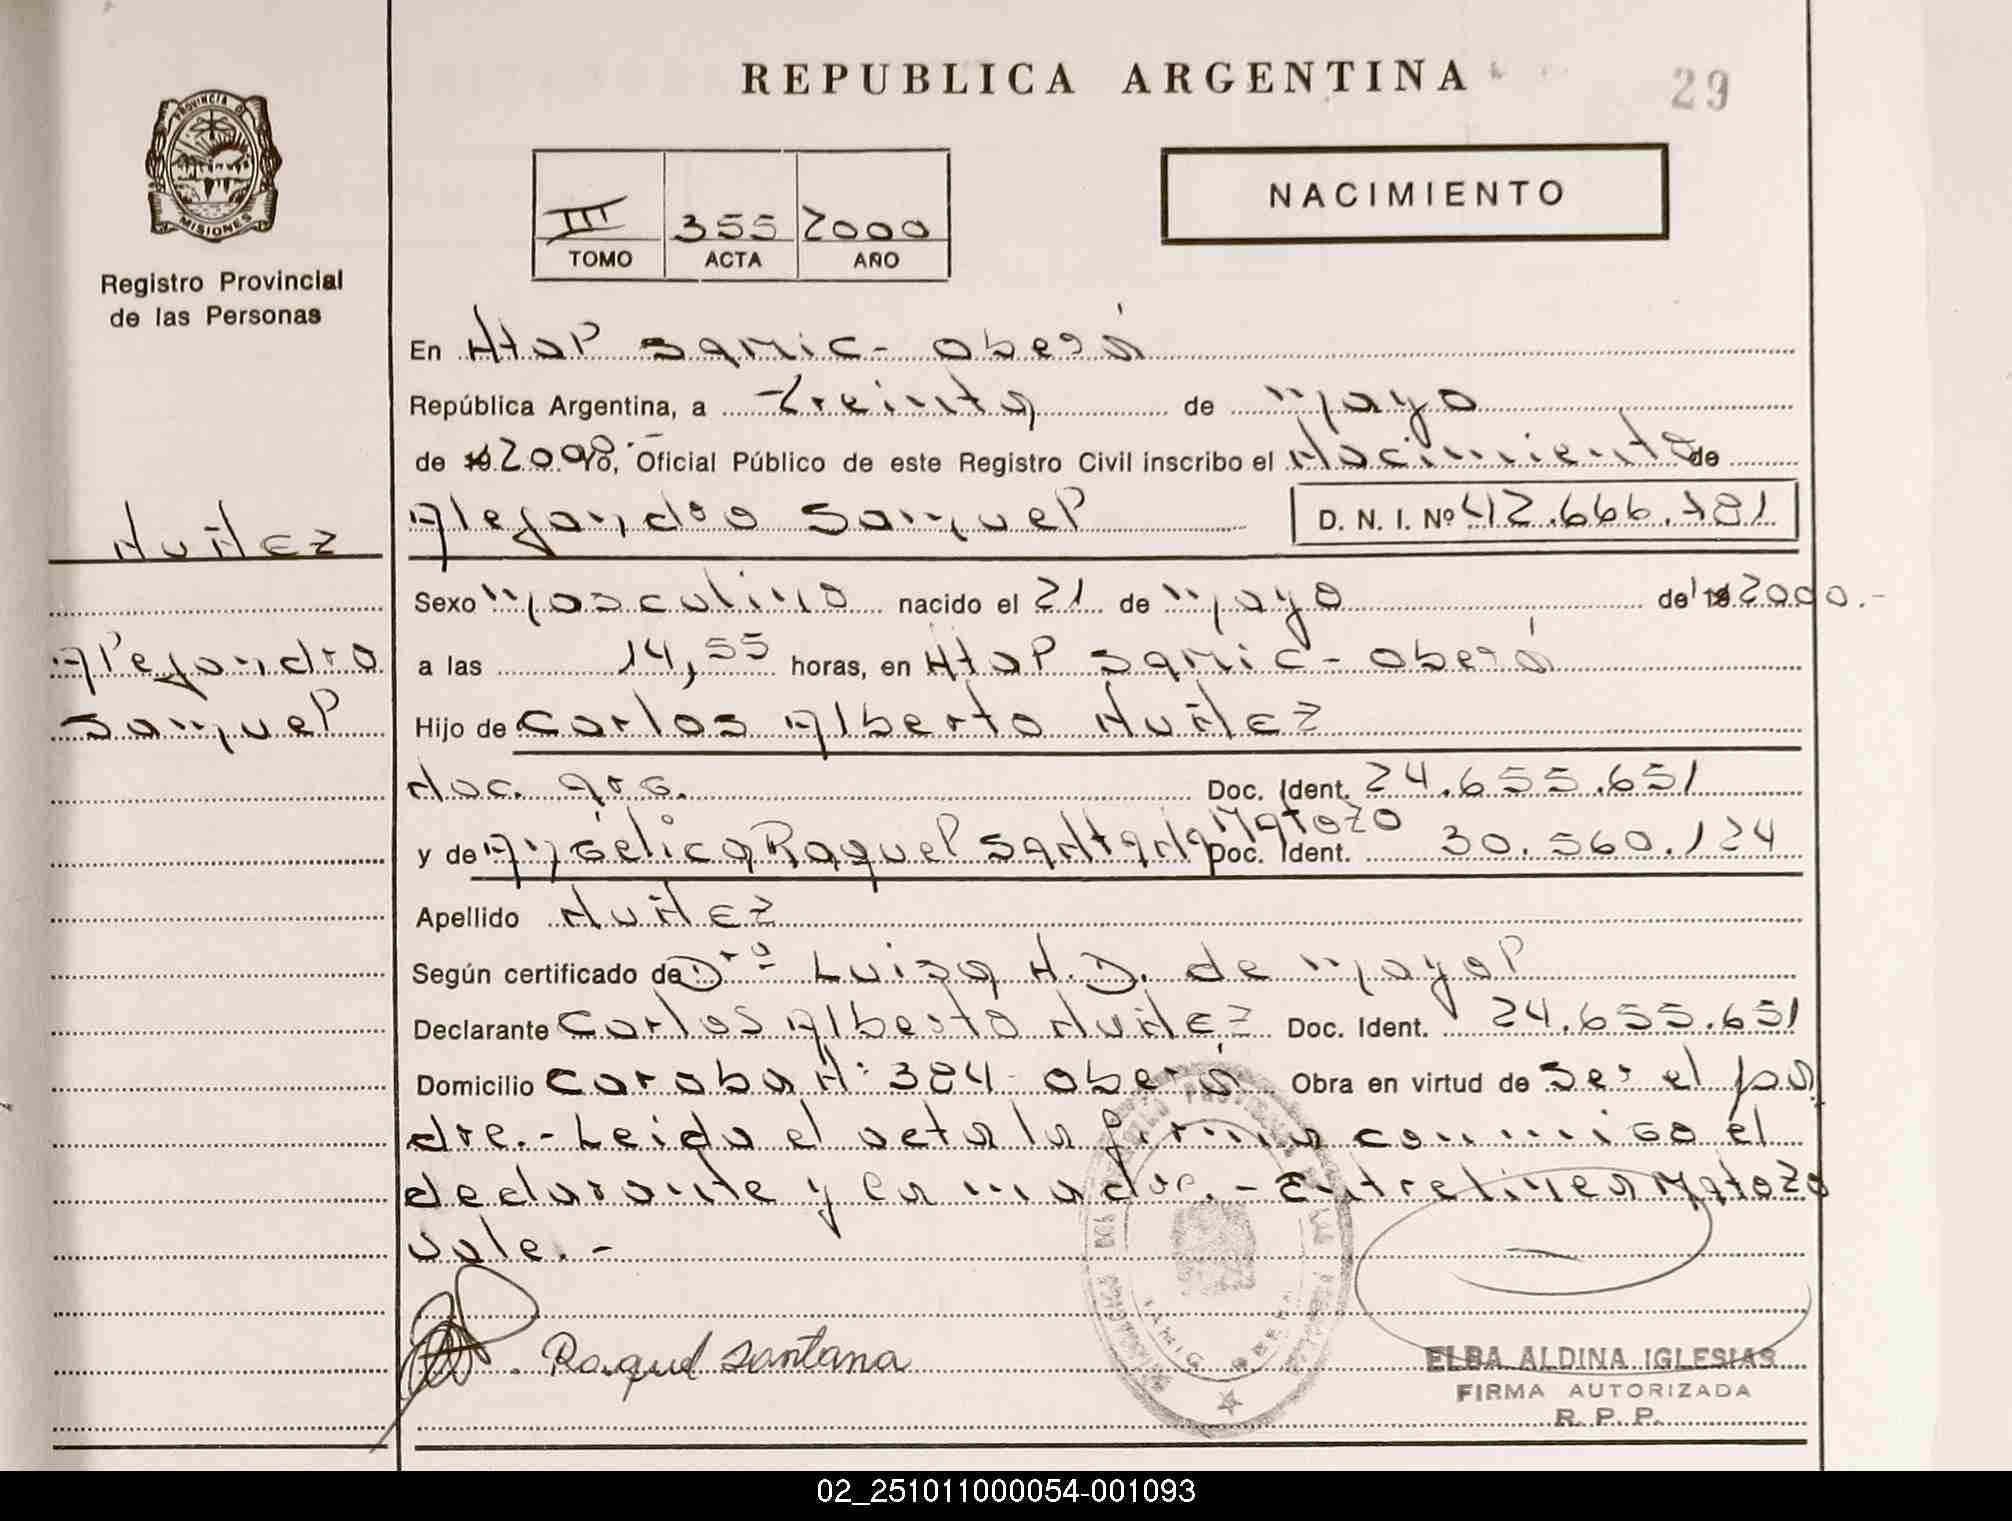 REPUBLICA ARGENTINA
29
PROVINCIA DE
MISIONES
Registro Provincial
de las Personas
III 355 2000
TOMO ACTA AÑO
NACIMIENTO
En Htal Samic - Oberá
República Argentina, a treinta de mayo
de 19 2000, Oficial Público de este Registro Civil inscribo el Nacimiento de
Alejandro Samuel D. N. I. Nº 42.666.781
Nuñez
Sexo Masculino nacido el 21 de mayo de 19 2000.-
Alejandro
a las 14,55 horas, en Htal Samic - Oberá
Samuel
Hijo de Carlos Alberto Nuñez
Nac. arg. Doc. Ident. 24.655.651
Matozo
y de Angélica Raquel Santana Doc. Ident. 30.560.124
Apellido Nuñez
Según certificado de Dra Luisa H.D. de Mayol
Declarante Carlos Alberto Nuñez Doc. Ident. 24.655.651
Domicilio Caroba N: 384 - Oberá Obra en virtud de Ser el pa
dre.- Leida el acta la firma conmigo el
declarante y la madre.- Entrelinea Matozo
vale.-
Raquel Santana
ELBA ALDINA IGLESIAS
FIRMA AUTORIZADA
R. P. P.
02_251011000054-001093